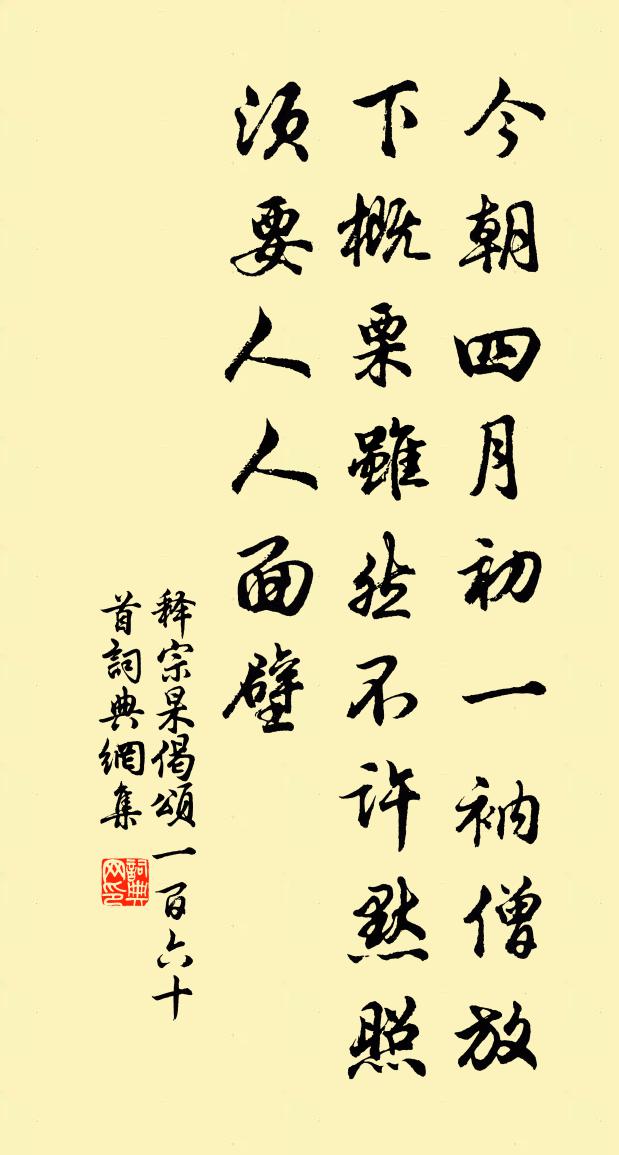 今朝四月初一衲僧放
下概栗雖然不許默照
須要人人面壁
释宗杲偈頌一百六十
首詞典網集
詞典网印